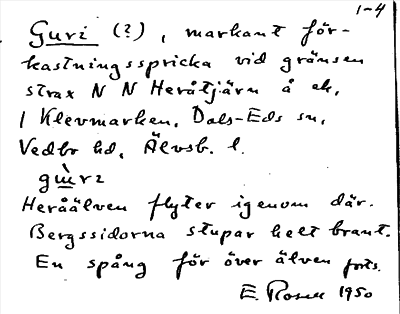 1-4
Guri (?), markant för-
kastningsspricka vid gränsen
strax N N Heråtjärn å ek,
/ Klevmarken, Dals-Eds sn,
Vedbo hd, Älvsb. l.
Heråälven flyter igenom där.
Bergssidorna stupar helt brant.
En spång för över älven forts.
E. Rosell 1950